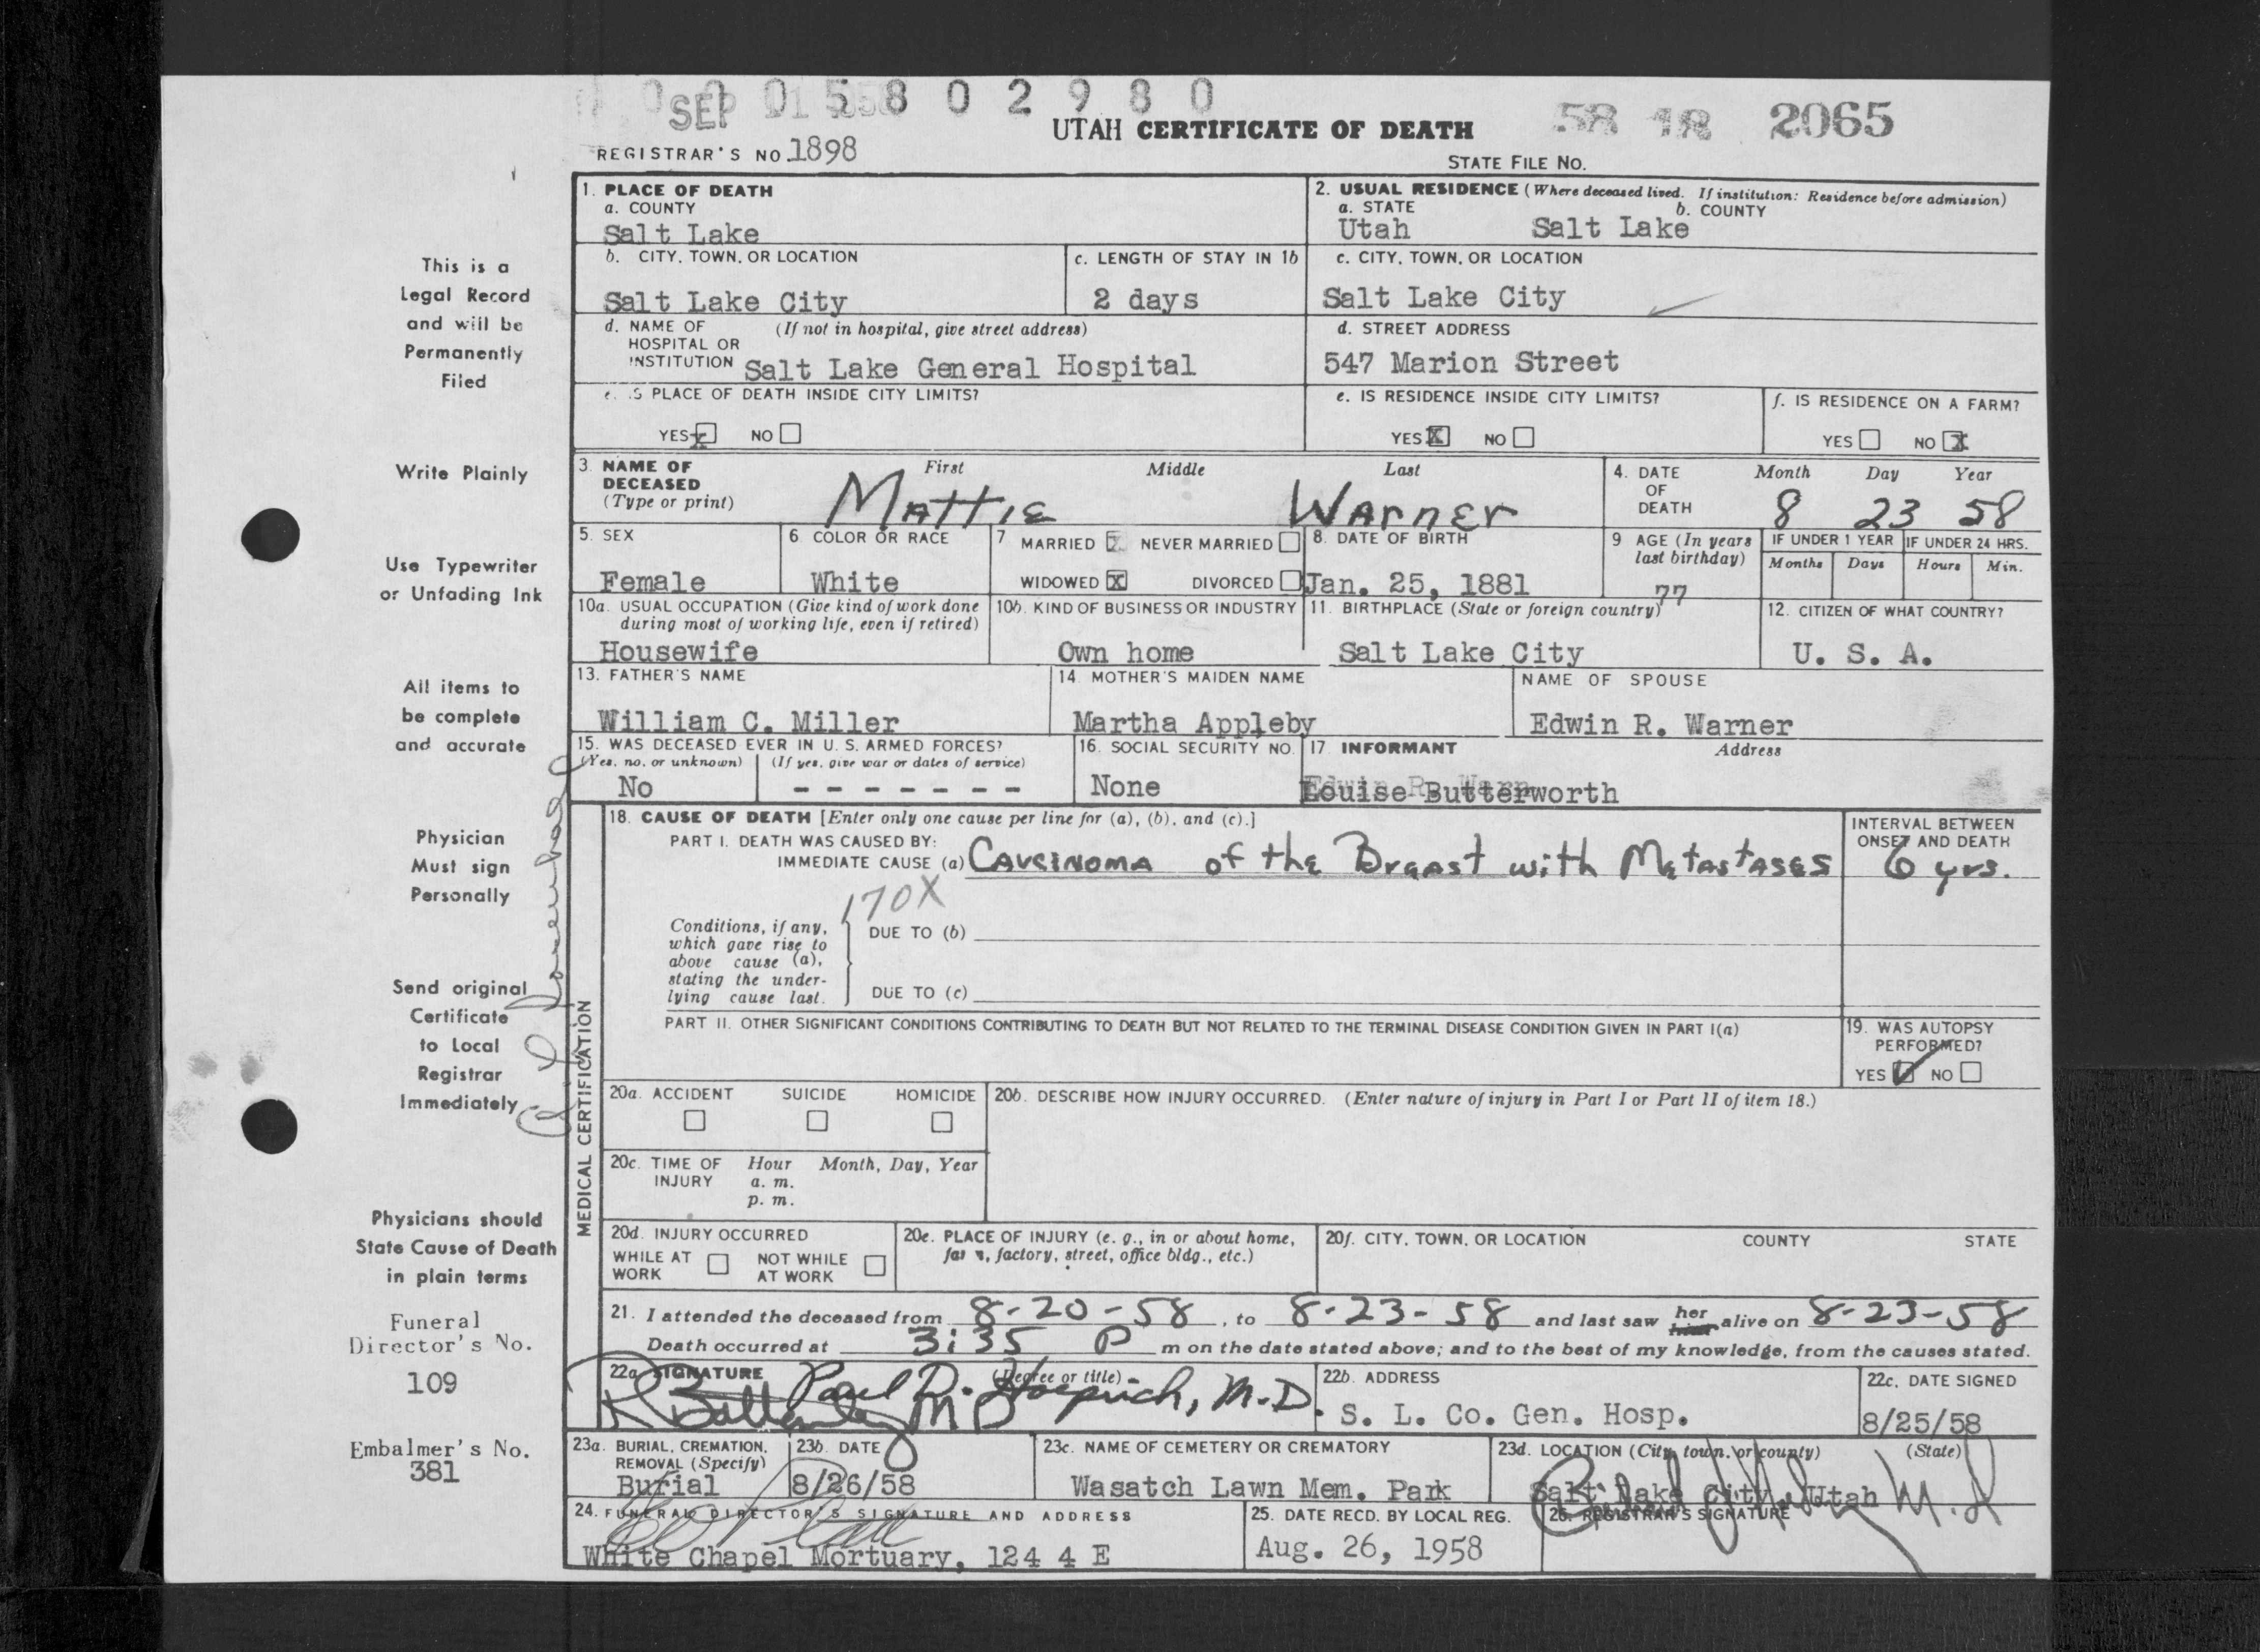 SEP 0 1 5 8 0 2 9 8 0
UTAH CERTIFICATE OF DEATH 58 18 2065
REGISTRAR'S NO. 1898
STATE FILE NO.
This is a
Legal Record
and will be
Permanently
Filed
Write Plainly
Use Typewriter
or Unfading Ink
All items to
be complete
and accurate
Physician
Must sign
Personally
Send original
Certificate
to Local
Registrar
Immediately
Physicians should
State Cause of Death
in plain terms
Funeral
Director's No.
109
Embalmer's No.
381
1. PLACE OF DEATH
a. COUNTY
Salt Lake
2. USUAL RESIDENCE (Where deceased lived. If institution: Residence before admission)
a. STATE b. COUNTY
Utah Salt Lake
b. CITY, TOWN, OR LOCATION
Salt Lake City
c. LENGTH OF STAY IN 1b
2 days
c. CITY, TOWN, OR LOCATION
Salt Lake City
d. NAME OF (If not in hospital, give street address)
HOSPITAL OR
INSTITUTION Salt Lake General Hospital
d. STREET ADDRESS
547 Marion Street
e. IS PLACE OF DEATH INSIDE CITY LIMITS?
YES x NO
e. IS RESIDENCE INSIDE CITY LIMITS?
YES X NO
f. IS RESIDENCE ON A FARM?
YES NO X
3. NAME OF First Middle Last
DECEASED
(Type or print) Mattie Warner
4. DATE Month Day Year
OF
DEATH 8 23 58
5. SEX
Female
6 COLOR OR RACE
White
7 MARRIED NEVER MARRIED
WIDOWED X DIVORCED
8. DATE OF BIRTH
Jan. 25, 1881
9 AGE (In years
last birthday)
77
IF UNDER 1 YEAR IF UNDER 24 HRS.
Months Days Hours Min.
10a. USUAL OCCUPATION (Give kind of work done
during most of working life, even if retired)
Housewife
10b. KIND OF BUSINESS OR INDUSTRY
Own home
11. BIRTHPLACE (State or foreign country)
Salt Lake City
12. CITIZEN OF WHAT COUNTRY?
U. S. A.
13. FATHER'S NAME
William C. Miller
14. MOTHER'S MAIDEN NAME
Martha Appleby
NAME OF SPOUSE
Edwin R. Warner
15. WAS DECEASED EVER IN U. S. ARMED FORCES?
(Yes, no, or unknown) (If yes, give war or dates of service)
No - - - - - - -
16. SOCIAL SECURITY NO.
None
17. INFORMANT Address
Louise Butterworth
MEDICAL CERTIFICATION
18. CAUSE OF DEATH [Enter only one cause per line for (a), (b), and (c).]
PART I. DEATH WAS CAUSED BY:
IMMEDIATE CAUSE (a) Carcinoma of the Breast with Metastases
INTERVAL BETWEEN
ONSET AND DEATH
6 yrs.
170X
Conditions, if any,
which gave rise to
above cause (a),
stating the under-
lying cause last.
DUE TO (b)
DUE TO (c)
PART II. OTHER SIGNIFICANT CONDITIONS CONTRIBUTING TO DEATH BUT NOT RELATED TO THE TERMINAL DISEASE CONDITION GIVEN IN PART I(a)
19. WAS AUTOPSY
PERFORMED?
YES ✓ NO
20a. ACCIDENT SUICIDE HOMICIDE
20b. DESCRIBE HOW INJURY OCCURRED. (Enter nature of injury in Part I or Part II of item 18.)
20c. TIME OF Hour Month, Day, Year
INJURY a. m.
p. m.
20d. INJURY OCCURRED
WHILE AT NOT WHILE
WORK AT WORK
20e. PLACE OF INJURY (e. g., in or about home,
farm, factory, street, office bldg., etc.)
20f. CITY, TOWN, OR LOCATION COUNTY STATE
21. I attended the deceased from 8-20-58, to 8-23-58 and last saw her him alive on 8-23-58
Death occurred at 3:35 P m on the date stated above; and to the best of my knowledge, from the causes stated.
22a SIGNATURE (Degree or title)
Paul D. Hoeprich, M.D.
M D
22b. ADDRESS
S. L. Co. Gen. Hosp.
22c. DATE SIGNED
8/25/58
23a. BURIAL, CREMATION,
REMOVAL (Specify)
Burial
23b. DATE
8/26/58
23c. NAME OF CEMETERY OR CREMATORY
Wasatch Lawn Mem. Park
23d. LOCATION (City, town, or county) (State)
Salt Lake City, Utah
24. FUNERAL DIRECTOR'S SIGNATURE AND ADDRESS
White Chapel Mortuary, 124 4 E
25. DATE RECD. BY LOCAL REG.
Aug. 26, 1958
26. REGISTRAR'S SIGNATURE
M. D